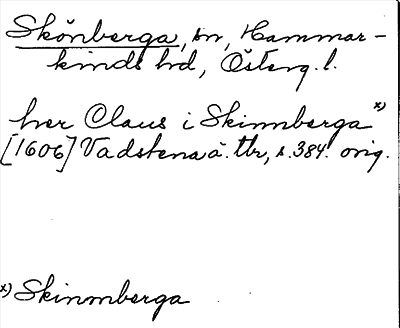 Skönberga, sn, Hammar-
kinds hd, Österg. l.
her Claus i Skinnberga x)
[1606] Vadstena ä. tbr, s. 384. orig.
x) Skinmberga